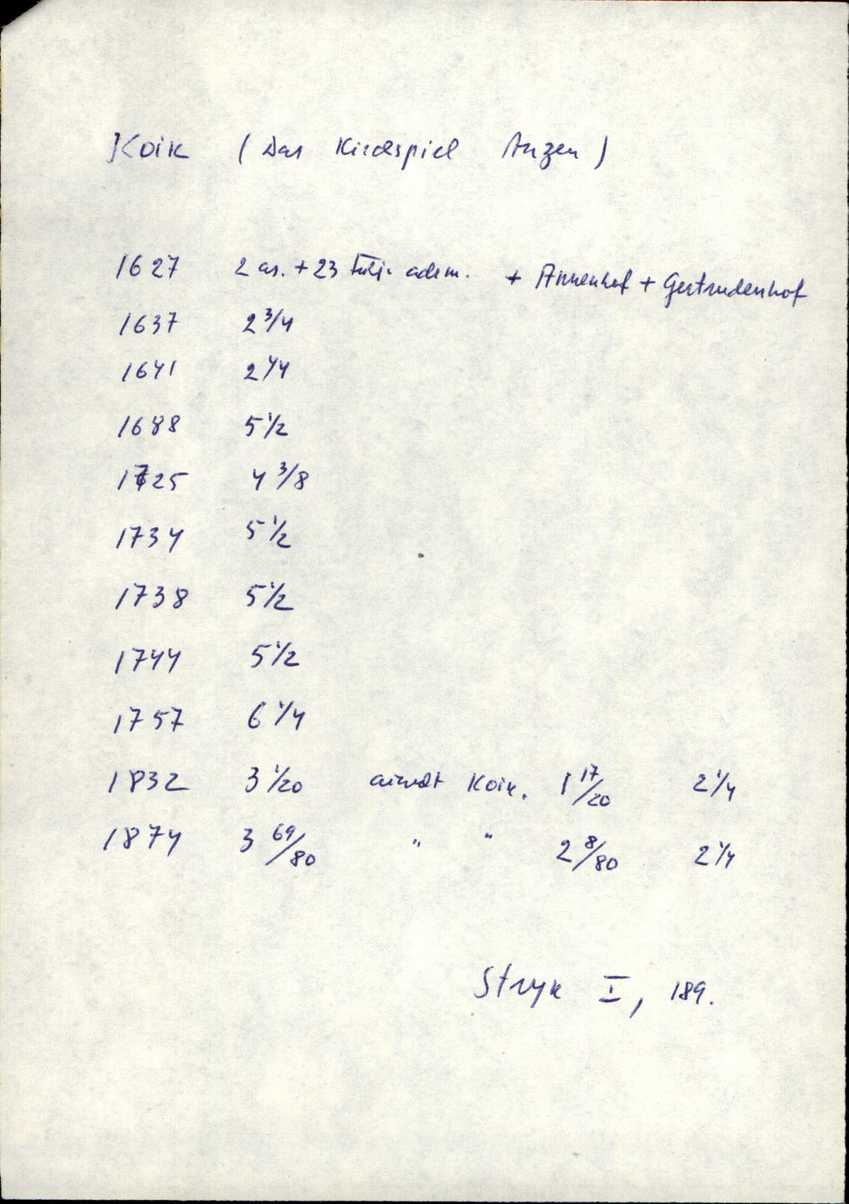 Koik (Das Kirchspiel Anzen)
1627 2 as. + 23 adem. + Annenhof + Gertrudenhof
1637 2 3/4
1641 2 1/4
1688 5 1/2
1725 4 3/8
1734 5 1/2
1738 5 1/2
1744 5 1/2
1757 6 1/4
1832 3 1/20 Koik. 1 17/20 2 1/4
1874 3 69/80 " " 2 8/80 2 1/4
Stryk I, 189.